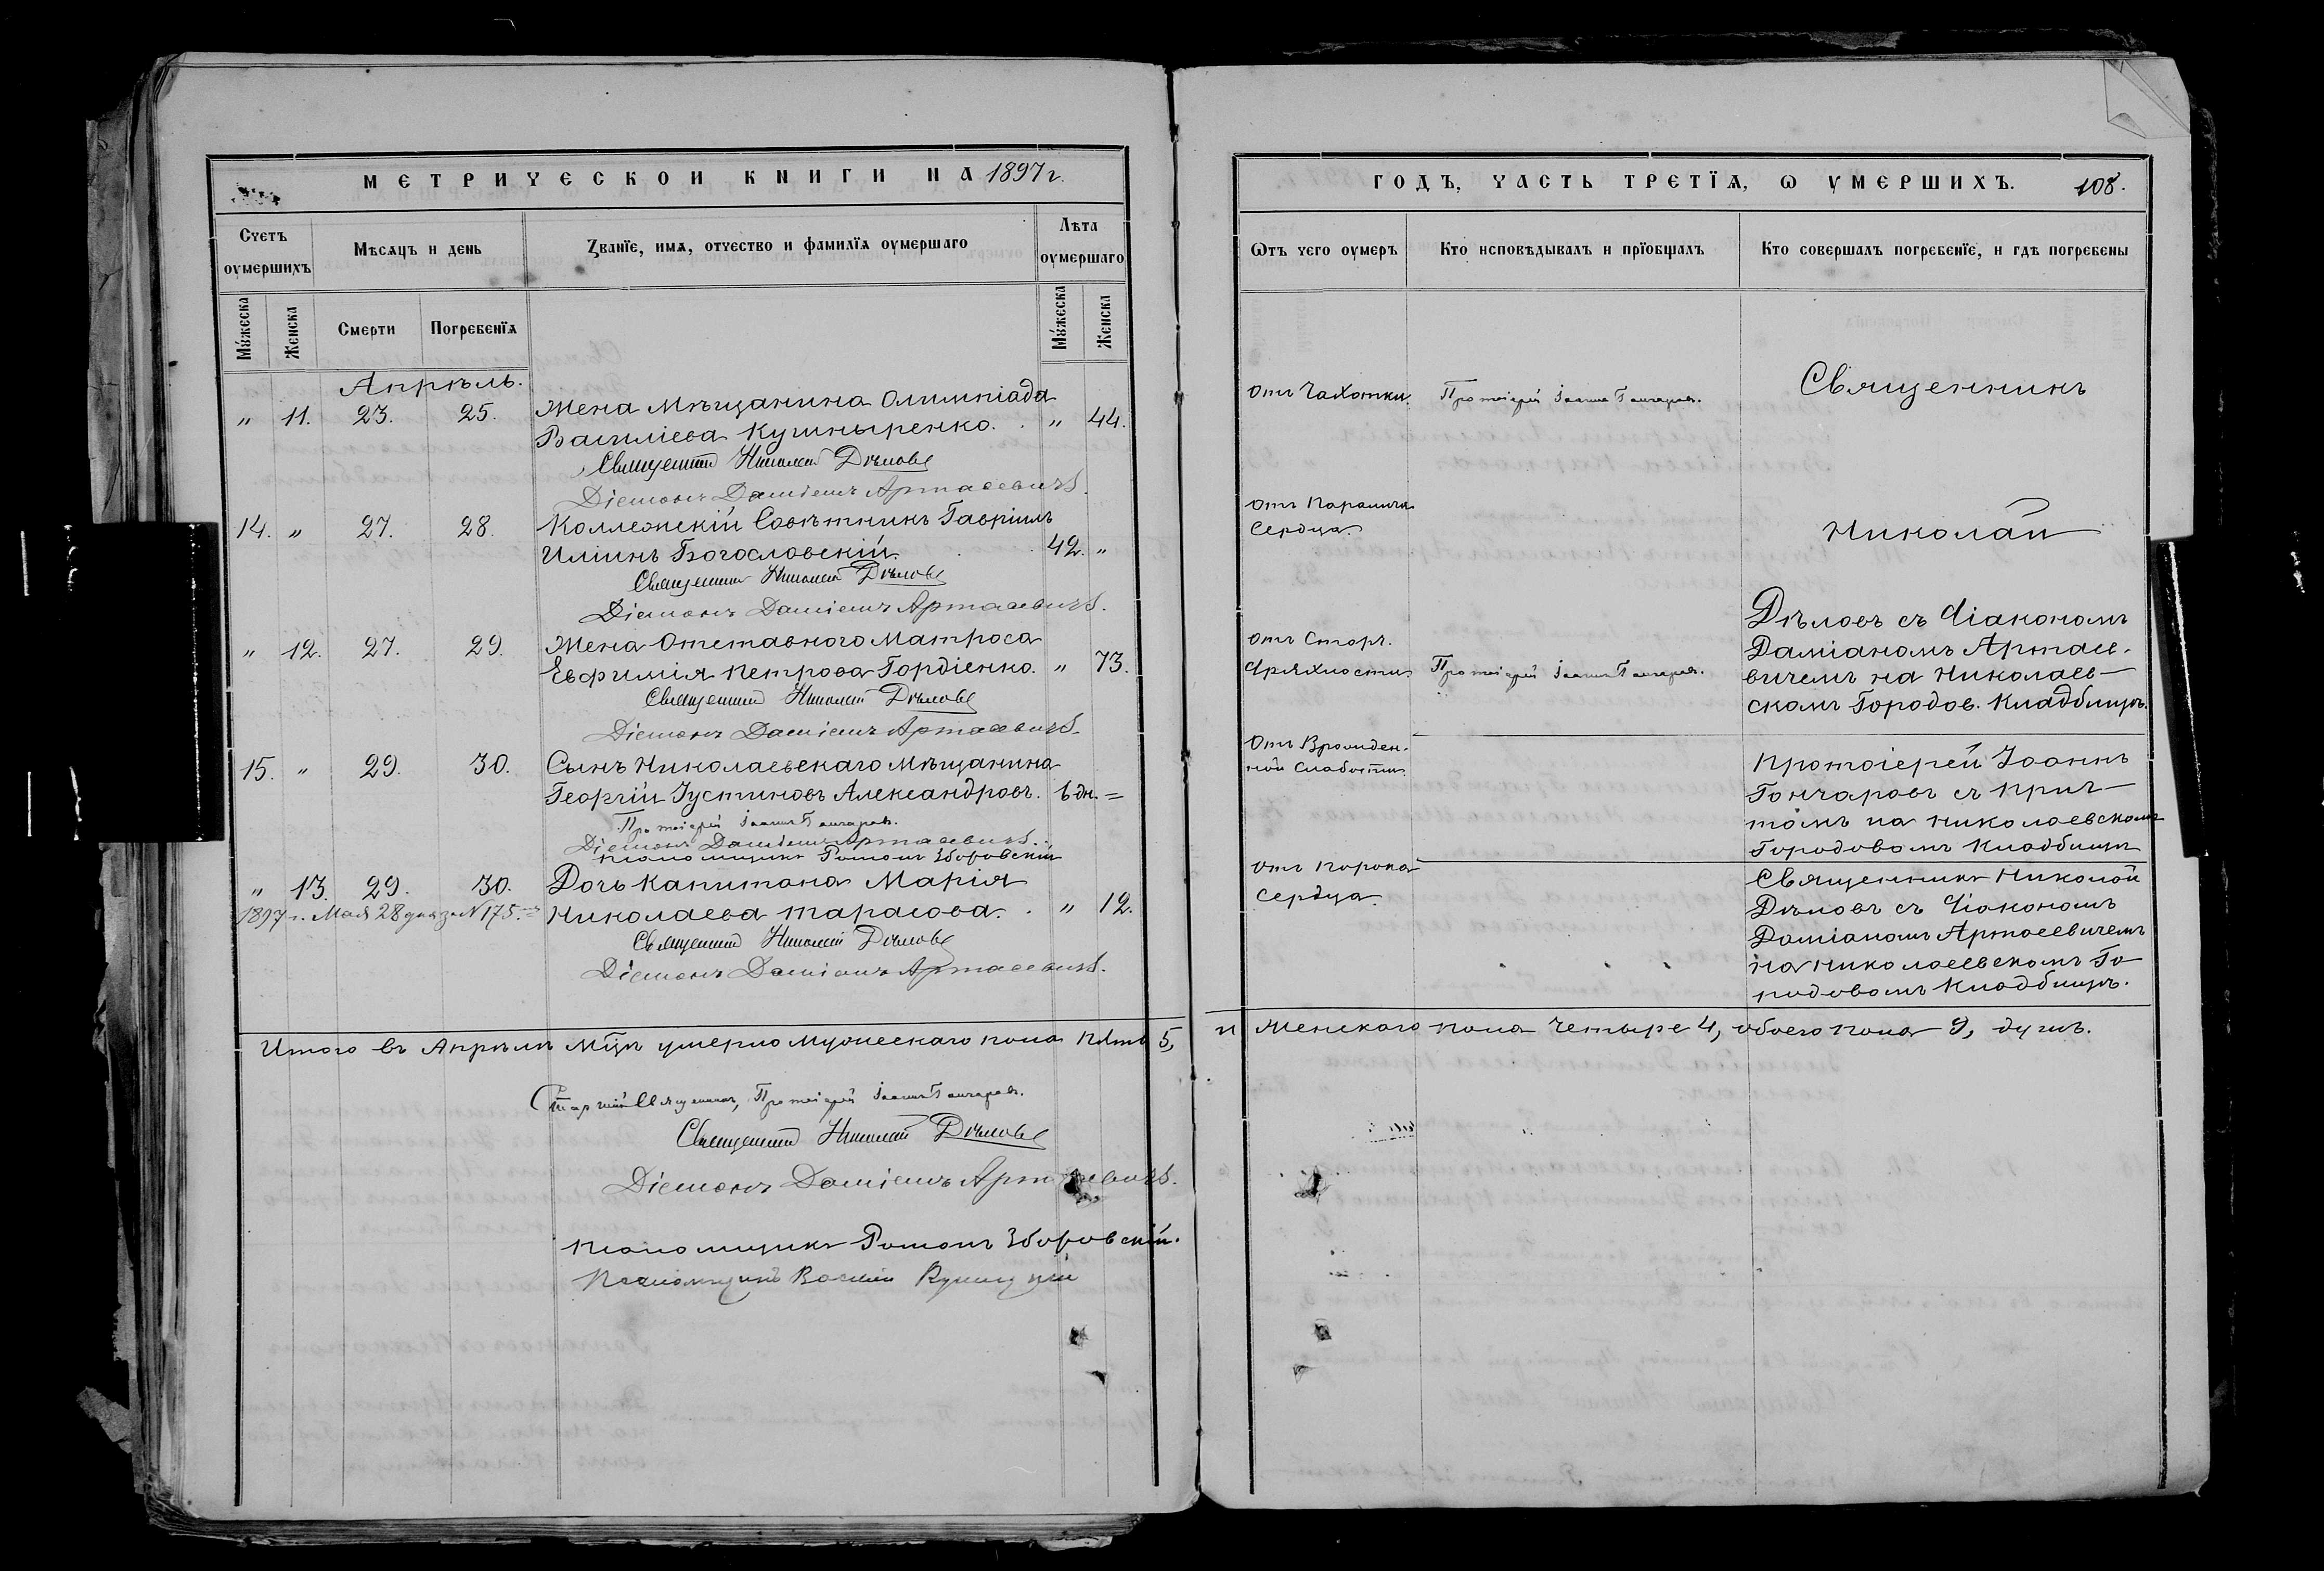 МЕТРИЧЕСКОЙ КНИГИ НА 1897 г.
Счетъ оумершихъ
Мѣсяцъ и день
Званїе, имя, отчество и фамилїя оумершаго
Лѣта оумершаго
Мꙋжеска
Женска
Смерти
Погребенїя
Мꙋжеска
Женска
Апрѣль.
" 11. 23. 25. Жена Мѣщанина Олимпіада
Василіева Кушныренко. " 44.
Священникъ Николай Дѣловъ
Діаконъ Даміанъ Артасевичъ.
14. " 27. 28. Коллежскій Совѣтникъ Гавріилъ
Иліинъ Богословскій. 42. "
Священникъ Николай Дѣловъ
Діаконъ Даміанъ Артасевичъ.
" 12. 27. 29. Жена Отставного Матроса
Евфимія Петрова Гордіенко. " 73.
Священникъ Николай Дѣловъ
Діаконъ Даміанъ Артасевичъ.
15. " 29. 30. Сынъ Николаевскаго Мѣщанина
Георгій Іустиновъ Александровъ. 6 дн. =
Протоіерей Іоаннъ Гончаровъ.
Діаконъ Даміанъ Артасевичъ.
Псаломщикъ Романъ Зборовскій
" 13. 29. 30. Дочь Капитана Марія
1897 г. Мая 28 дня за № 175. Николаева Тарасова. " 12.
Священникъ Николай Дѣловъ
Діаконъ Даміанъ Артасевичъ.
Итого въ Апрѣлѣ Мцѣ умерло Мужескаго пола пять 5,
Старшій Священникъ, Протоіерей Іоаннъ Гончаровъ.
Священникъ Николай Дѣловъ
Діаконъ Даміанъ Артасевичъ.
Псаломщикъ Романъ Зборовскій.
Псаломщикъ Василій
ГОДЪ, ЧАСТЬ ТРЕТЇЯ, Ѡ УМЕРШИХЪ. 108.
Ѿтъ чего оумеръ
Кто исповѣдывалъ и прїобщалъ
Кто совершалъ погребенїе, и гдѣ погребены
Отъ Чахотки. Протоіерей Іоаннъ Гончаровъ. Священникъ
Отъ Паралича
Сердца. Николай
Дѣловъ съ Діакономъ
Отъ Старч. Даміаномъ Артасе-
Дряхлости Протоіерей Іоаннъ Гончаровъ. вичемъ на Николаев-
скомъ Городов. Кладбищѣ.
Отъ Врожден-
ной Слабости. Протоіерей Іоаннъ
Гончаровъ съ прич-
томъ на Николаевскомъ
Городовомъ Кладбищѣ
Отъ Порока Священникъ Николай
Сердца. Дѣловъ съ Діакономъ
Даміаномъ Артасевичемъ
на Николаевскомъ Го-
родовомъ Кладбищѣ.
и Женскаго пола Четыре 4, обоего пола 9, душъ.